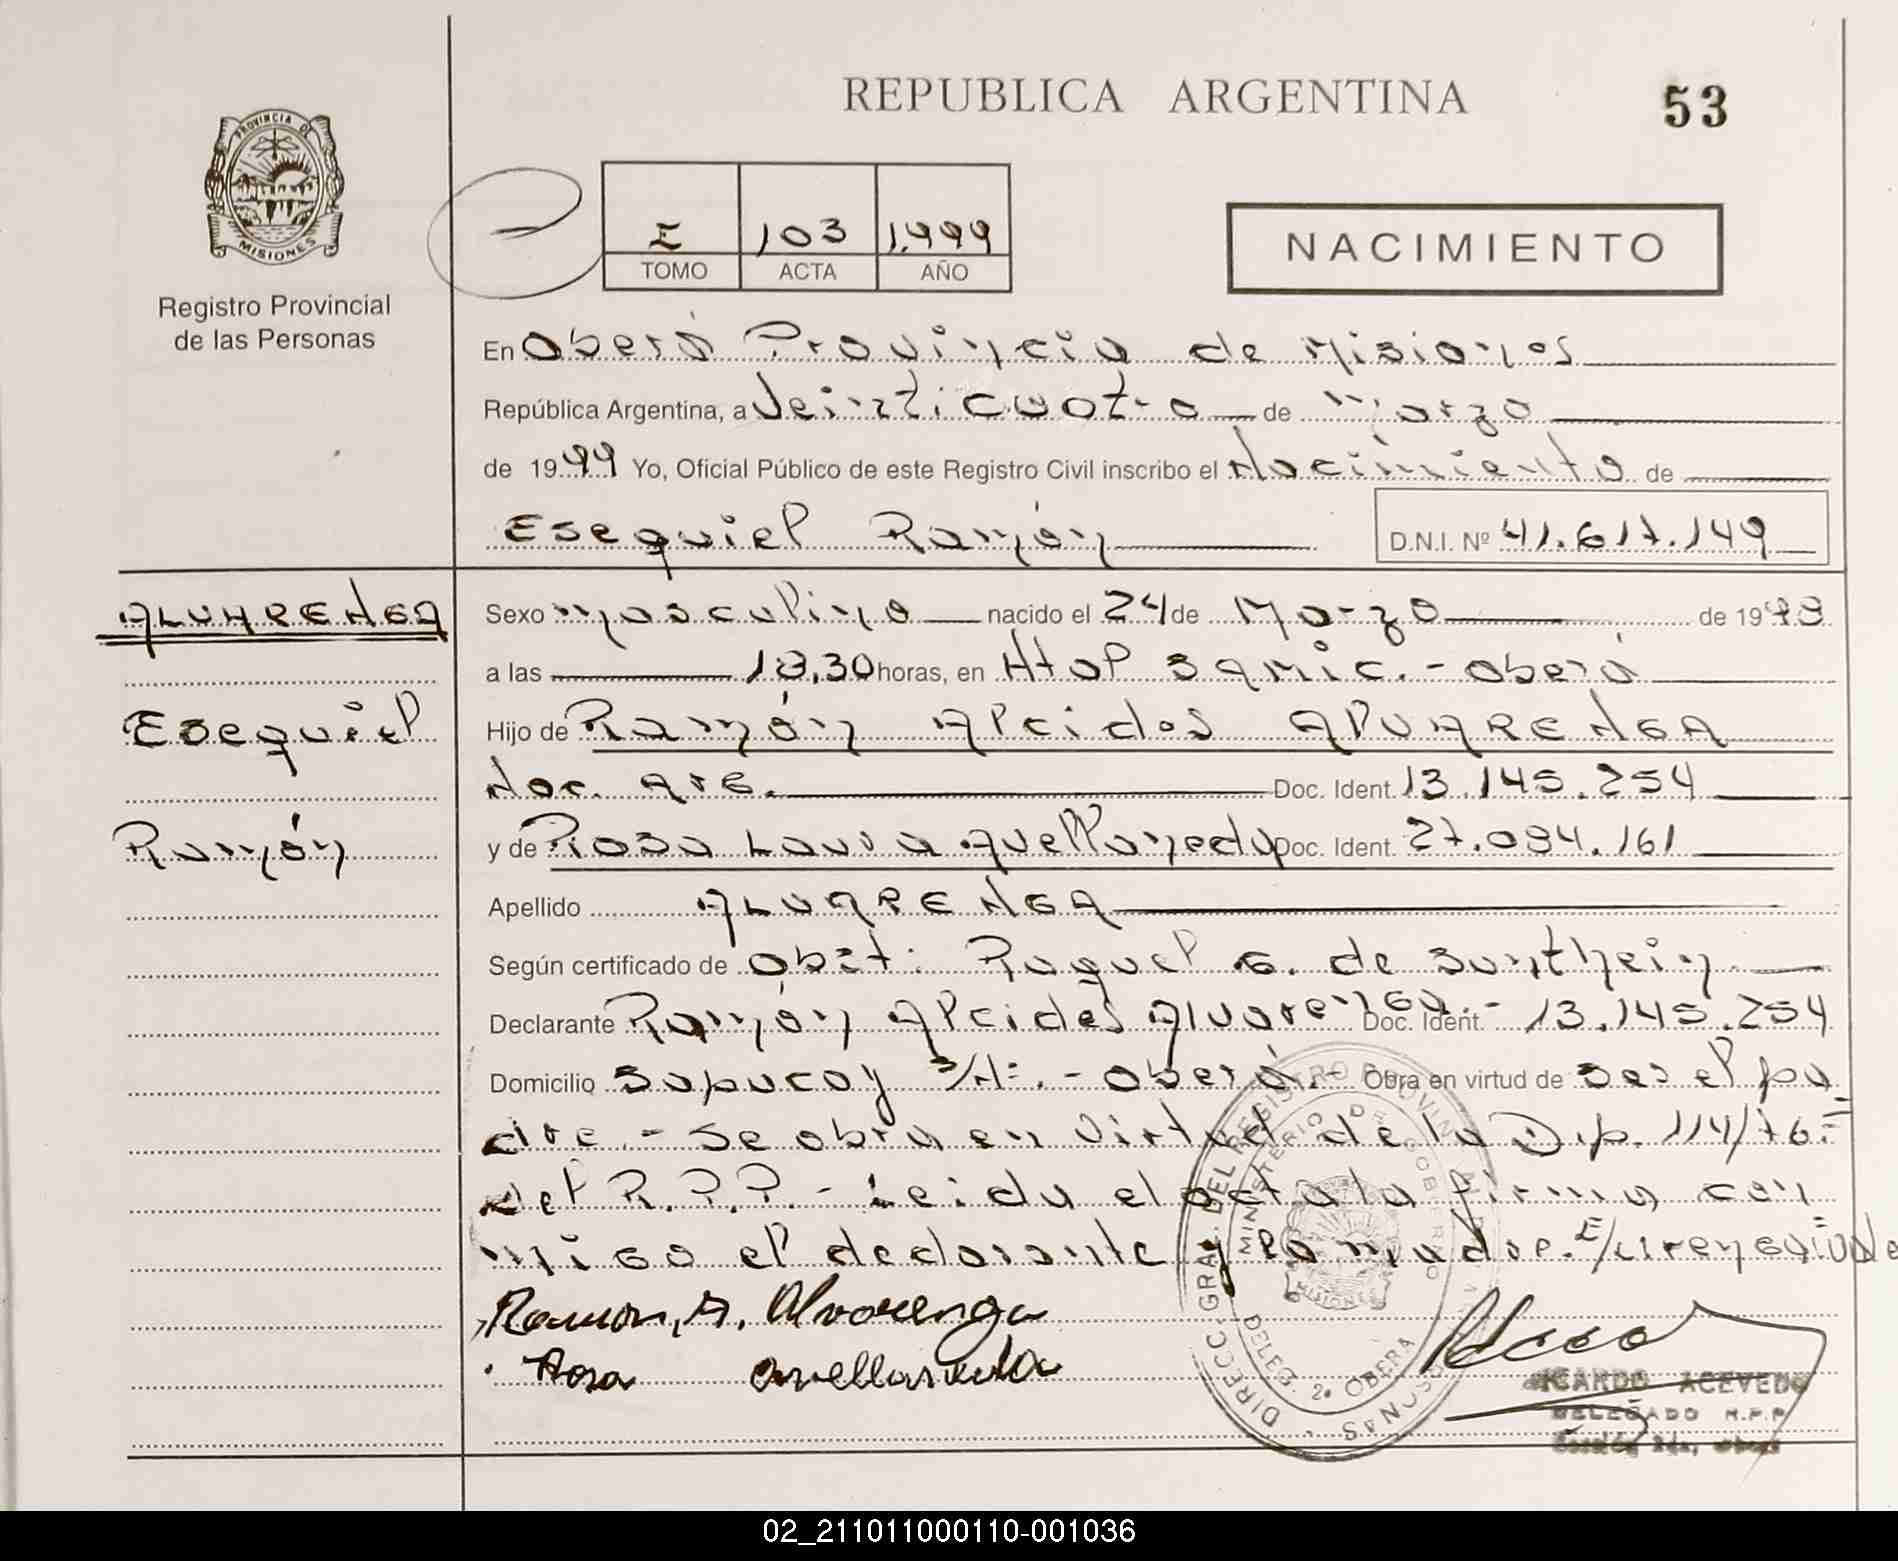 REPUBLICA ARGENTINA
53
PROVINCIA DE
MISIONES
Registro Provincial
de las Personas
I 103 1.999
TOMO ACTA AÑO
NACIMIENTO
En Oberá Provincia de Misiones
República Argentina, a Veinticuatro de Marzo
de 1999 Yo, Oficial Público de este Registro Civil inscribo el Nacimiento de
Esequiel Ramón
D.N.I. Nº 41.617.149
ALVARENGA
Esequiel
Ramón
Sexo masculino nacido el 24 de Marzo de 19
a las 18,30 horas, en Htal SAMIC.- Oberá
Hijo de Ramón Alcides ALVARENGA
Nac. Arg. Doc. Ident. 13.145.254
y de Rosa Laura Avellaneda Doc. Ident. 27.094.161
Apellido ALVARENGA
Según certificado de Obst: Raquel G. de
Declarante Ramón Alcides Alvarenga.- Doc. Ident. 13.145.254
Domicilio Sapucay S/Nº.- Oberá.- Obra en virtud de ser el pa
dre.- Se obra en virtud de la Disp. 114/76.=
del R.P.P.- Leida el acta la firma con
migo el declarante y la madre.
Ramon, A. Alvarenga
Rosa avellaneda
DIRECC. GRAL. DEL REGISTRO PROVINCIAL DE LAS PERSONAS
MINISTERIO DE GOBIERNO
DELEG. 2ª OBERA
MISIONES
RICARDO ACEVEDO
DELEGADO R.P.P.
02_211011000110-001036